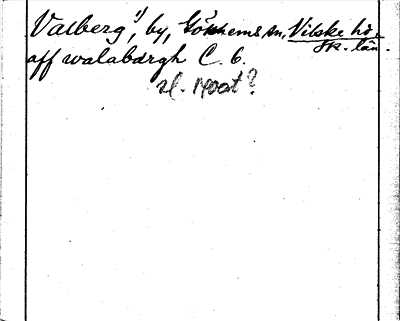 Valberg 1), by, Gökhems sn, Vilske hd.
Sk. län.
aff walabærgh C. 6.
sl. 1400t?